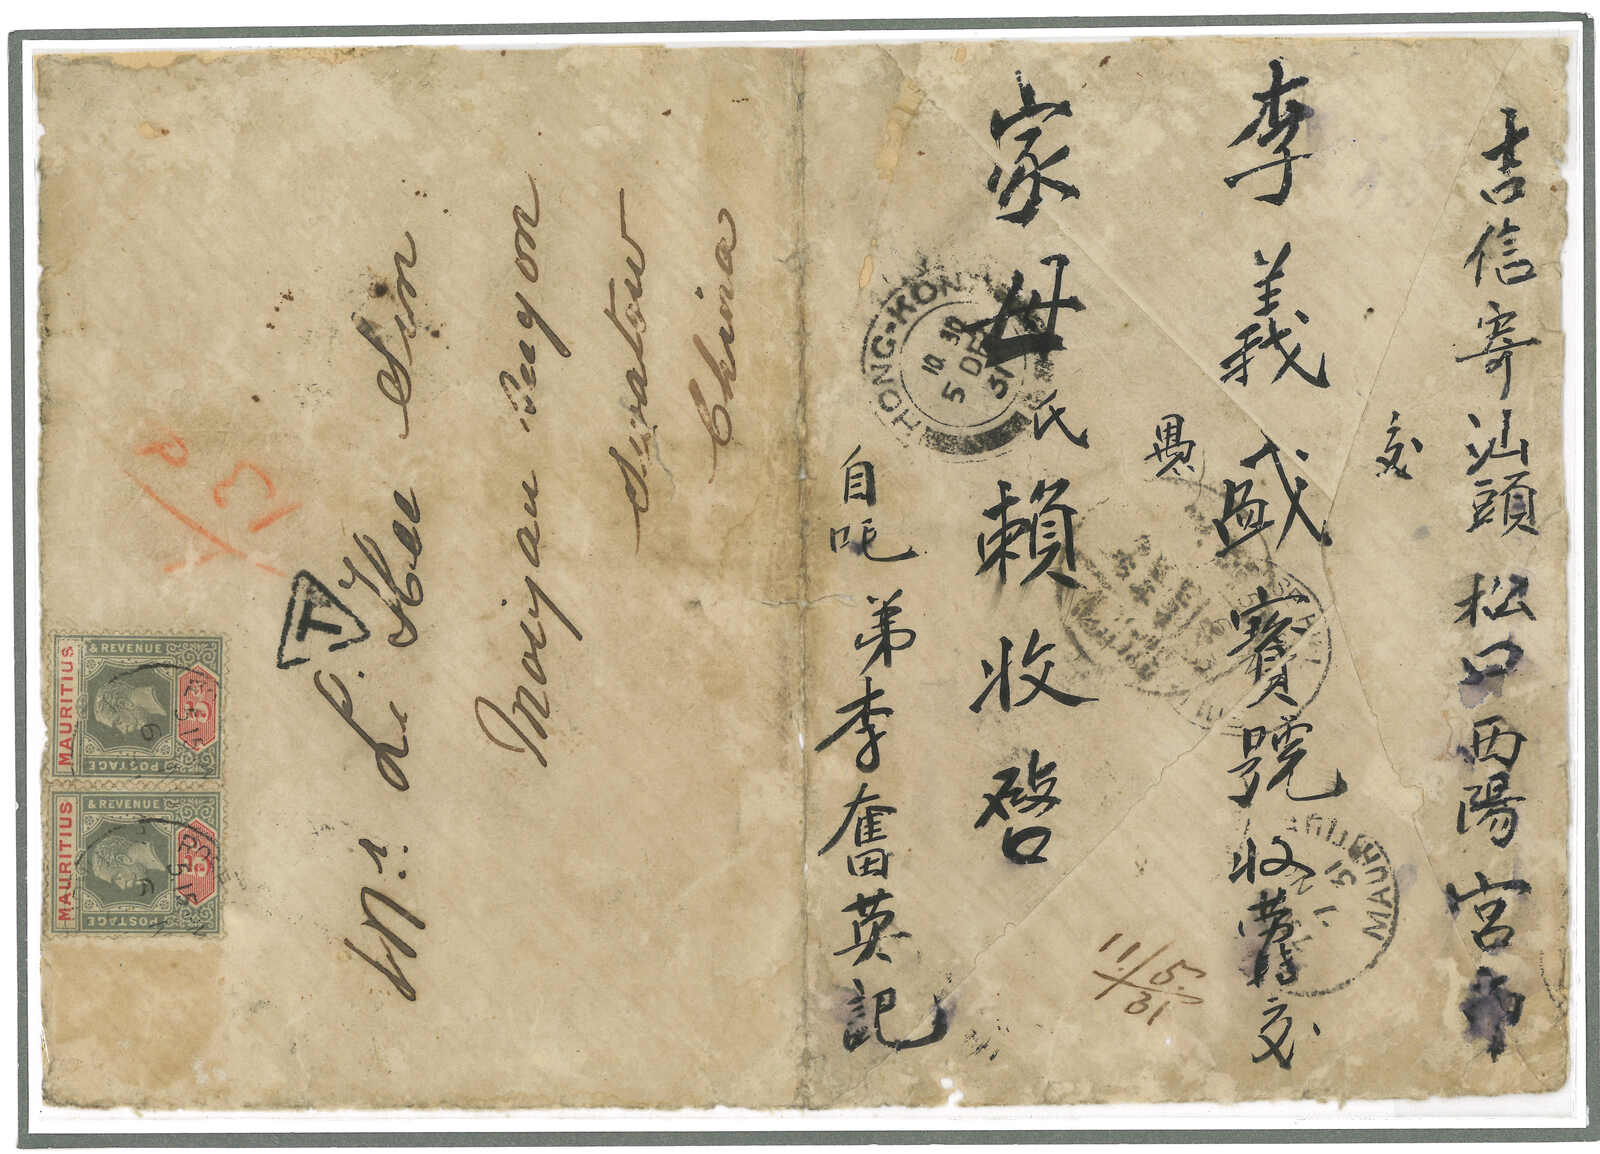 吉信寄汕頭松口西陽宮市
交
李義盛寶號收
交
愚
家母氏賴收啓
自吒
弟李奮英記
HONG-KONG
10 30
5 DE
31
MAURITIUS
11/5/31
Mr. Li Hee Sin
Moiyan
Swatow
China
T
MAURITIUS
POSTAGE & REVENUE
MAURITIUS
POSTAGE & REVENUE